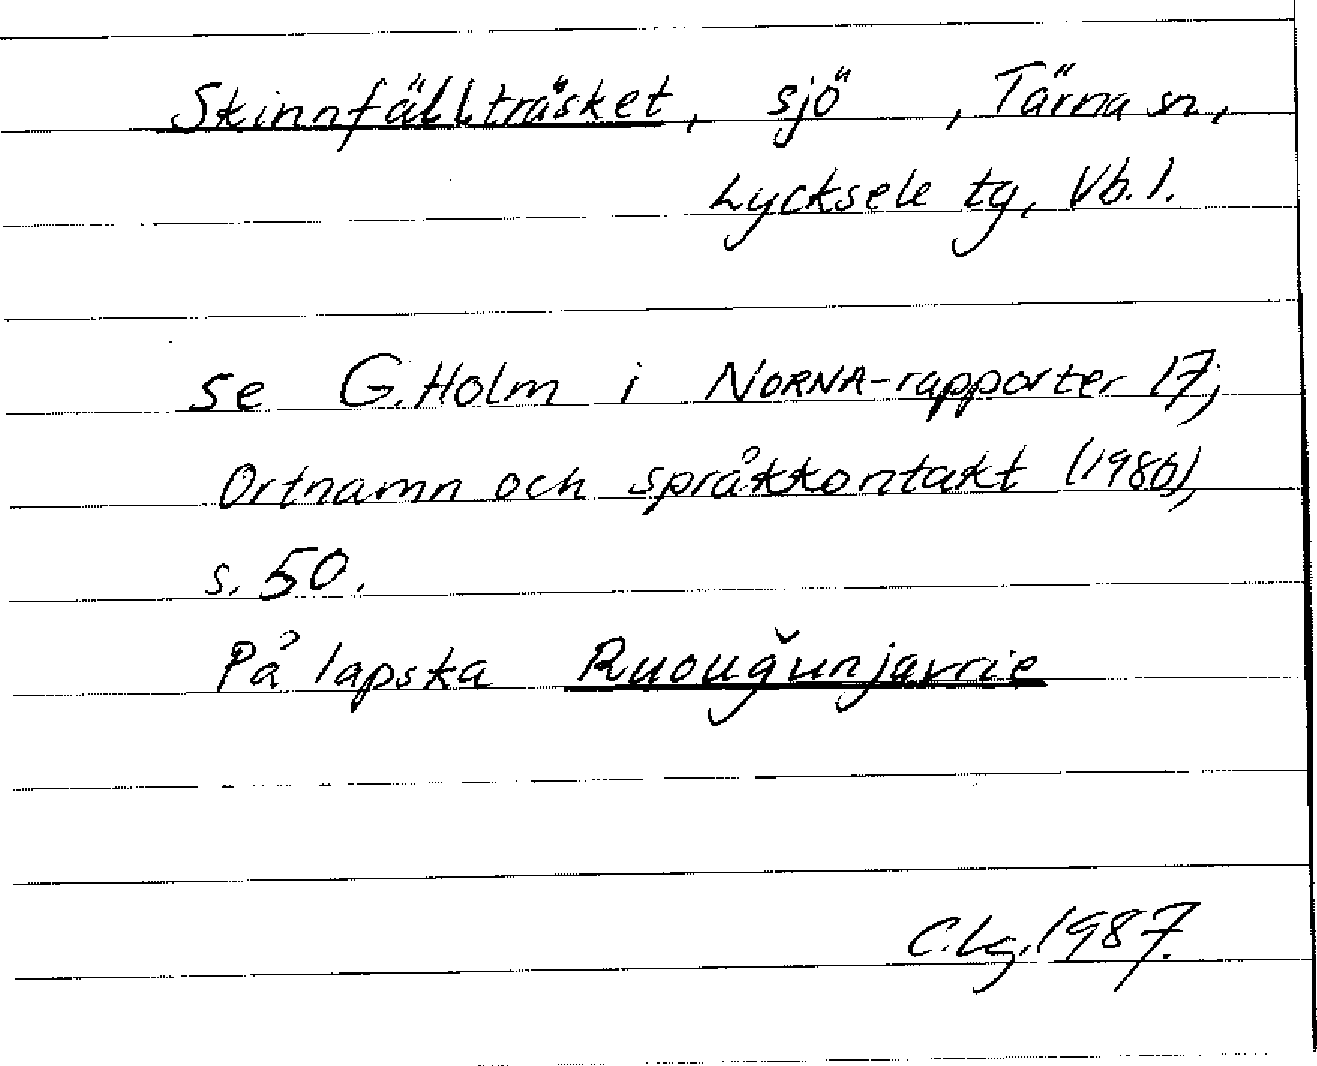 Skinnfällträsket, sjö, Tärna sn,
Lycksele tg, Vb. l.
se G. Holm i NORNA-rapporter 17;
Ortnamn och språkkontakt (1980),
s. 50.
På lapska Ruouǧunjavrie
C. Lg. 1987.